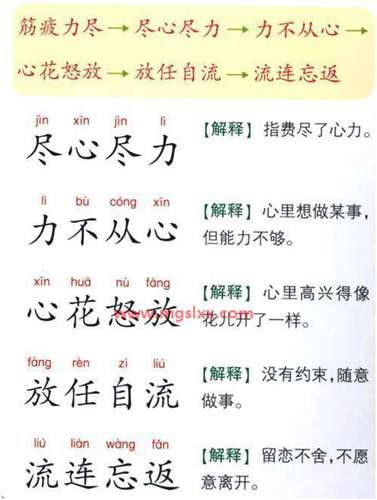 筋疲力尽→尽心尽力→力不从心→
心花怒放→放任自流→流连忘返
jìn xīn jìn lì
尽心尽力
【解释】指费尽了心力。
lì bù cóng xīn
力不从心
【解释】心里想做某事，
但能力不够。
xīn huā nù fàng
心花怒放
【解释】心里高兴得像
花儿开了一样。
www.mgslxy.com
fàng rèn zì liú
放任自流
【解释】没有约束，随意
做事。
liú lián wàng fǎn
流连忘返
【解释】留恋不舍，不愿
意离开。